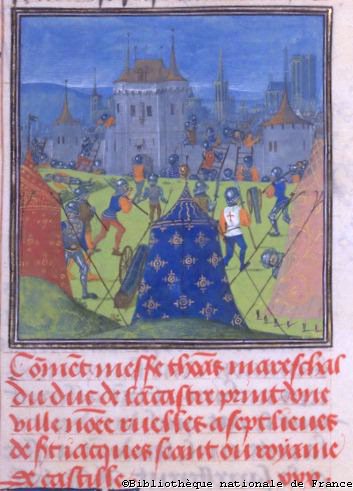 Com̃ent messe thoãs mareschal
du duc de lancastre print vne
ville nõee ruelles a sept lieues
de st iacques seant ou royaume
de castille
©Bibliothèque nationale de France